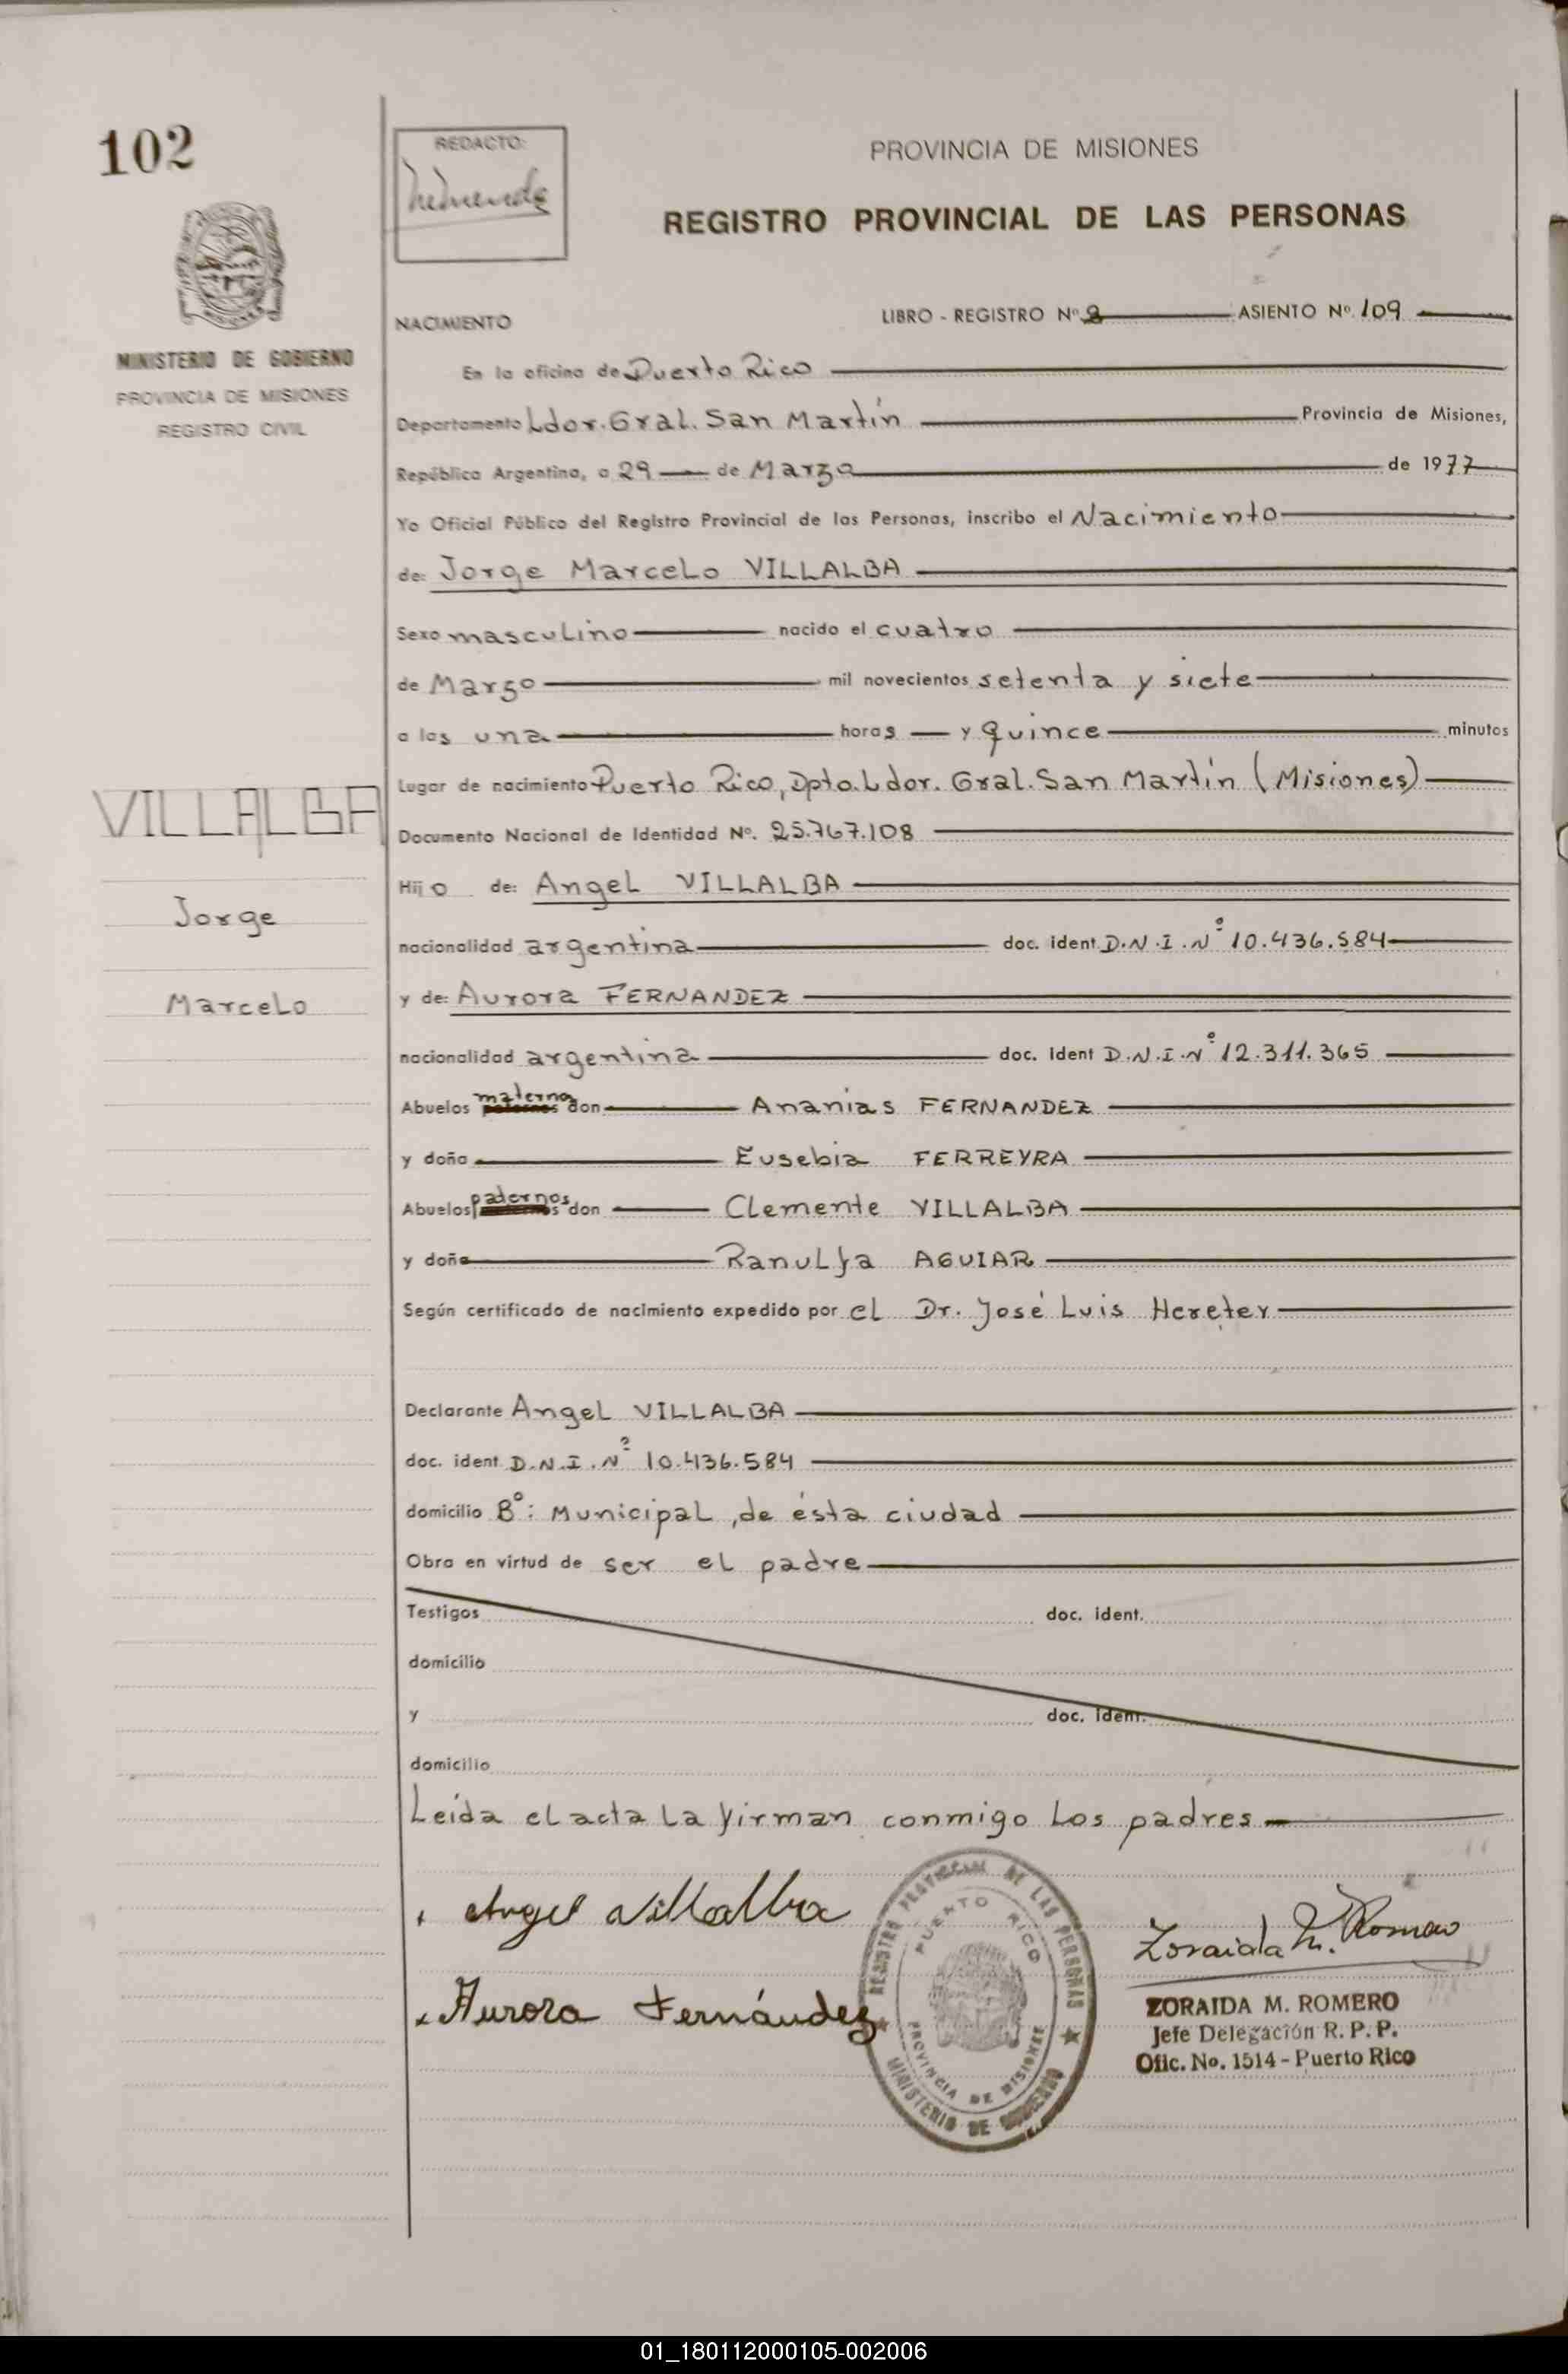 102
REDACTO:
PROVINCIA DE MISIONES
REGISTRO PROVINCIAL DE LAS PERSONAS
MINISTERIO DE GOBIERNO
PROVINCIA DE MISIONES
REGISTRO CIVIL
NACIMIENTO LIBRO - REGISTRO Nº 2 ASIENTO Nº 109
En la oficina de Puerto Rico
Departamento Ldor. Gral. San Martín Provincia de Misiones,
República Argentina, a 29 de Marzo de 1977
Yo Oficial Público del Registro Provincial de las Personas, inscribo el Nacimiento
de: Jorge Marcelo VILLALBA
Sexo masculino nacido el cuatro
de Marzo mil novecientos setenta y siete
a las una horas y quince minutos
Lugar de nacimiento Puerto Rico, Dpto. Ldor. Gral. San Martín (Misiones)
VILLALBA
Jorge
Marcelo
Documento Nacional de Identidad Nº. 25.767.108
Hijo de: Angel VILLALBA
nacionalidad argentina doc. ident D.N.I. Nº 10.436.584
y de: Aurora FERNANDEZ
nacionalidad argentina doc. ident D.N.I. Nº 12.311.365
Abuelos maternos don Ananias FERNANDEZ
y doña Eusebia FERREYRA
Abuelos paternos don Clemente VILLALBA
y doña Ranulfa AGUIAR
Según certificado de nacimiento expedido por el Dr. José Luis Hereter
Declarante Angel VILLALBA
doc. ident D.N.I. Nº 10.436.584
domicilio Bº: Municipal, de ésta ciudad
Obra en virtud de ser el padre
Testigos doc. ident.
domicilio
y doc. ident.
domicilio
Leída el acta la firman conmigo los padres
Angel Villalba
Aurora Fernández
REGISTRO PROVINCIAL DE LAS PERSONAS
PUERTO RICO
PROVINCIA DE MISIONES
MINISTERIO DE GOBIERNO
Zoraida M. Romero
ZORAIDA M. ROMERO
Jefe Delegación R. P. P.
Ofic. No. 1514 - Puerto Rico
01_180112000105-002006